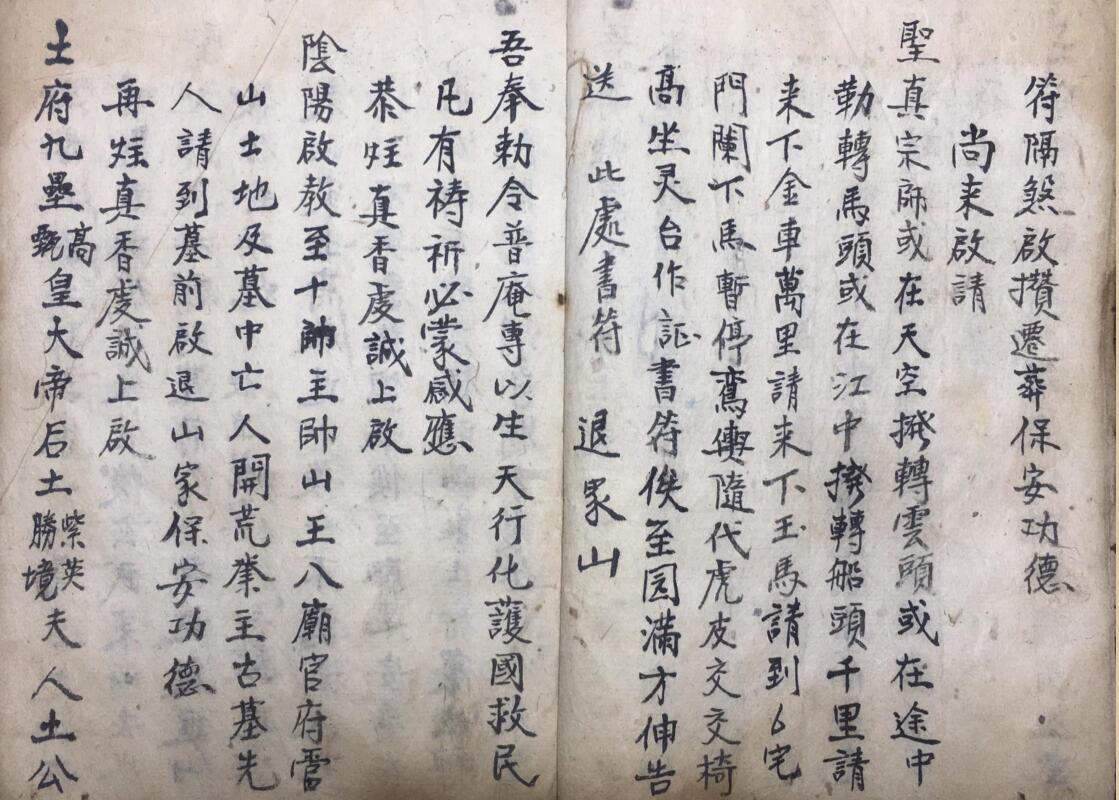 符隔煞啟攢遷葬保安功德
尚来啟請
聖真宗師或在天空撥轉雲頭或在途中
勒轉馬頭或在江中撥轉船頭千里請
来下金車萬里請来下玉馬請到宅
門闌下馬暫停鸞輿隨代虎皮交交椅
高坐灵台作証書符俟至园满方伸告
送 此處書符 退冢山
吾奉勅令普庵專以生天行化護國救民
凡有祷祈必蒙感應
恭炷真香虔誠上啟
陰陽啟教至十帥主帥山王八廟官府當
山土地及墓中亡人開荒拳主古墓先
人請到墓前啟退山家保安功德
再炷真香虔誠上啟
土府九壘高皇大帝后土紫英勝境夫人土公